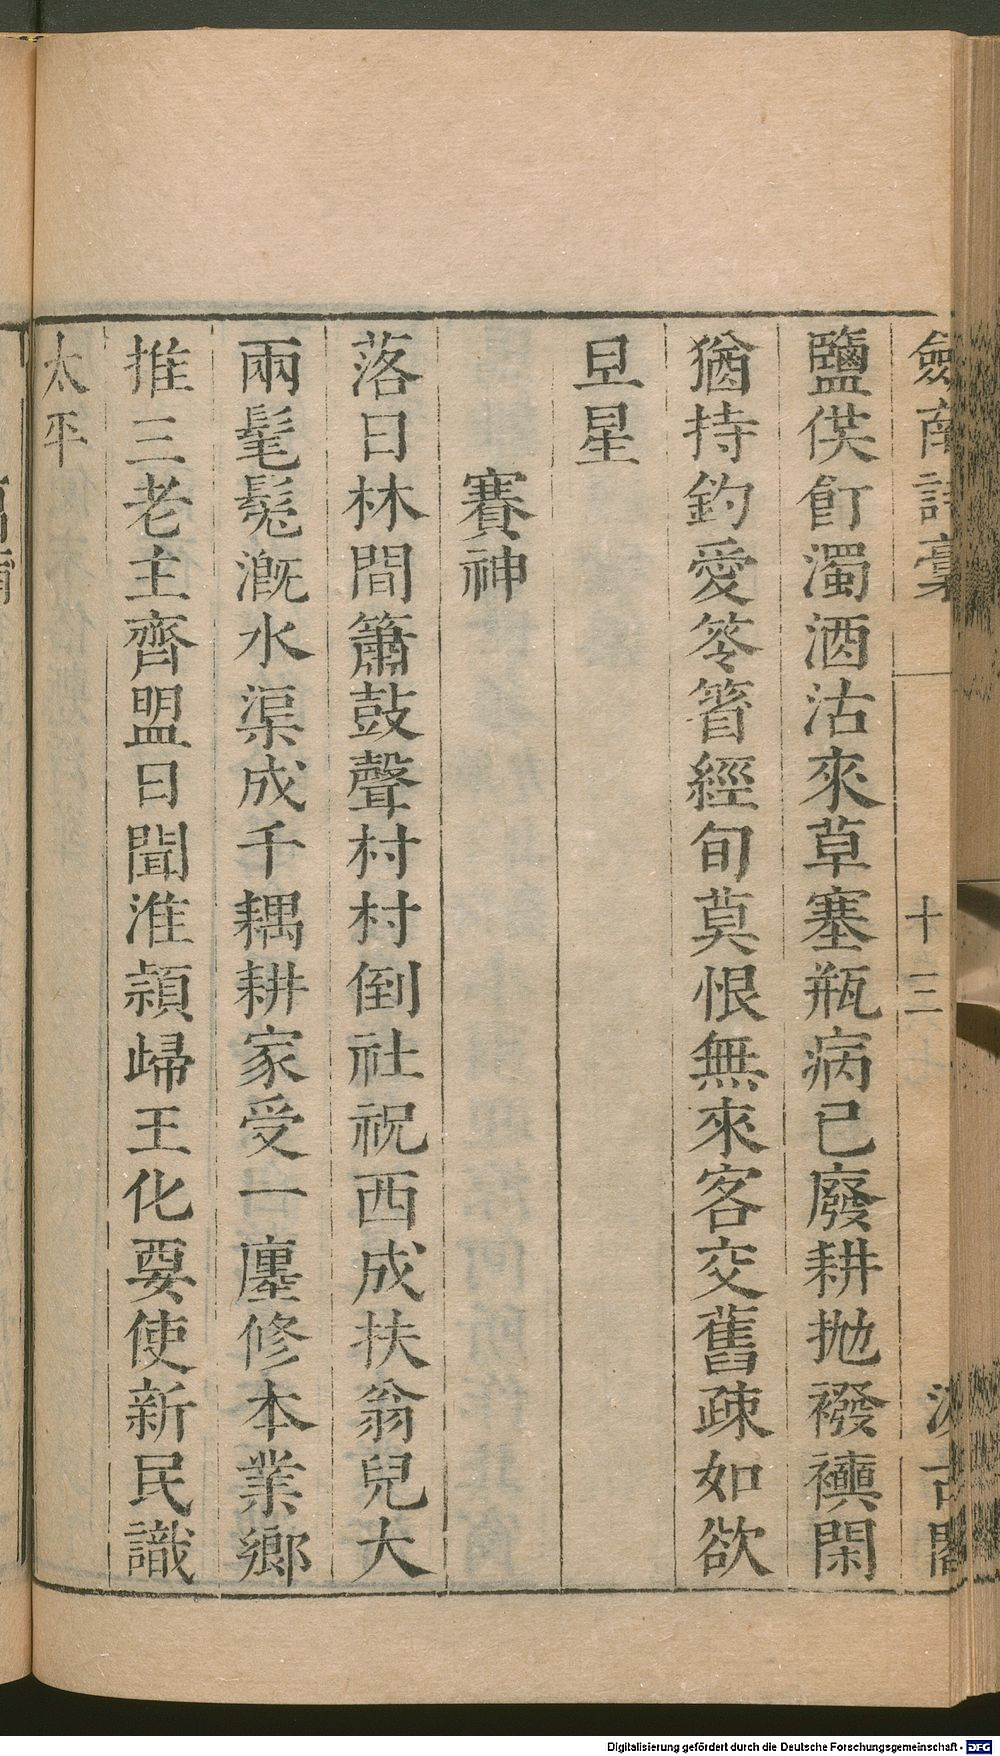 劍南詩藳
十三
汲古閣
鹽倓飣濁酒沽來草塞瓶病已廢耕抛襏襫閑
猶持釣愛笭箵經旬莫恨無來客交舊疎如欲
旦星
賽神
落日林間簫鼓聲村村倒社祝西成扶翁兒大
兩髦髧溉水渠成千耦耕家受一廛修本業鄉
推三老主齊盟日聞淮潁歸王化要使新民識
太平
Digitalisierung gefördert durch die Deutsche Forschungsgemeinschaft - DFG